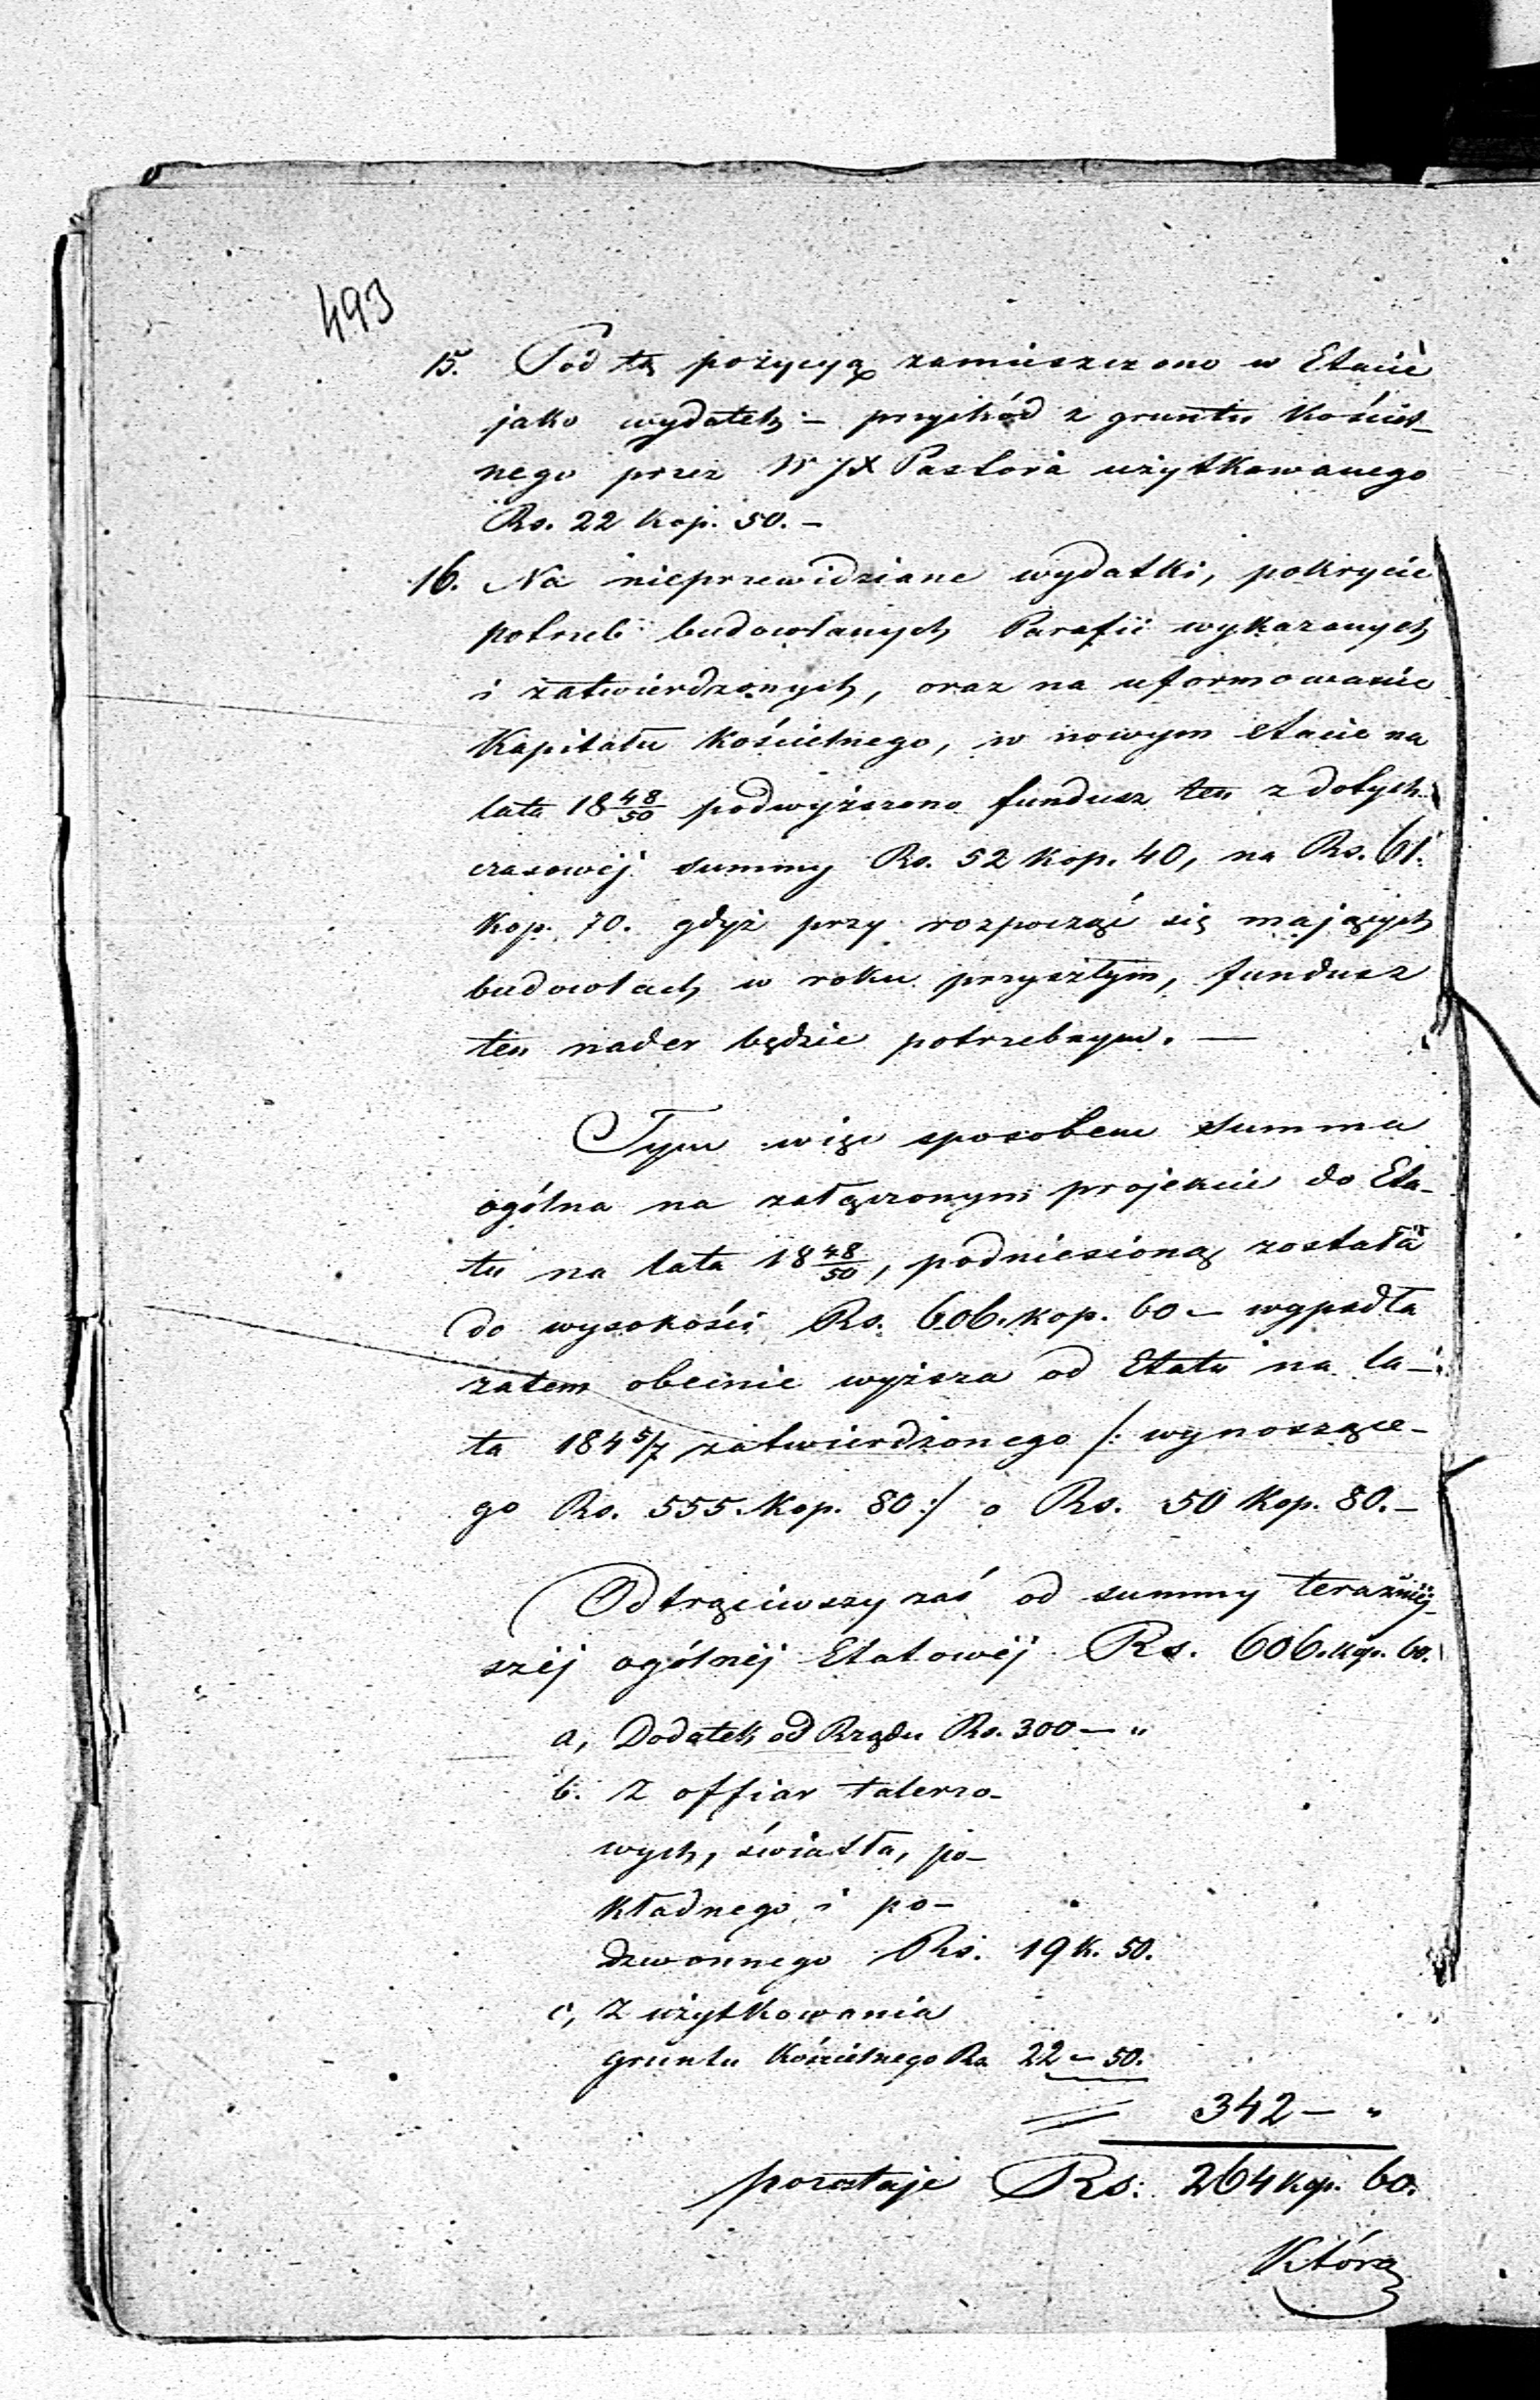 493
15. Pod tą pozycyą zamieszczono w Etacie
jako wydatek – przychód z gruntu Kościel-
nego przez WJX Pastora użytkowanego
Rs. 22 kop. 50. –
16. Na nieprzewidziane wydatki, pokrycie
potrzeb budowlanych Parafii wykazanych
i zatwierdzonych, oraz na uformowanie
Kapitału Kościelnego, w nowym etacie na
lata 18 48/50 podwyższono fundusz ten z dotych-
czasowéj summy Rs. 52 kop. 40, na Rs. 61.
kop. 70. gdyż przy rozpocząć się mających
budowlach w roku przyszłym, fundusz
ten nader będzie potrzebnym. —
Tym więc sposobem summa
ogólna na załączonym projekcie do Eta-
tu na lata 18 48/50, podniesioną została
do wysokości Rs. 606. kop. 60 – wypadła
zatem obecnie wyższa od Etatu na la-
ta 184 5/7 zatwierdzonego /: wynoszące-
go Rs. 555. kop. 80 :/ o Rs. 50 kop. 80. –
Odtrąciwszy zaś od summy teraźniéj-
széj ogólnéj Etatowéj Rs. 606. kop. 60.
a, Dodatek od Rządu Rs. 300 — "
b. Z offiar talerzo-
wych, światła, po-
kładnego i po-
dzwonnego Rs. 19 k. 50.
c, Z użytkowania
gruntu Kościelnego Rs 22 – 50.
342 — "
pozostaje Rs: 264 kop. 60.
Którą